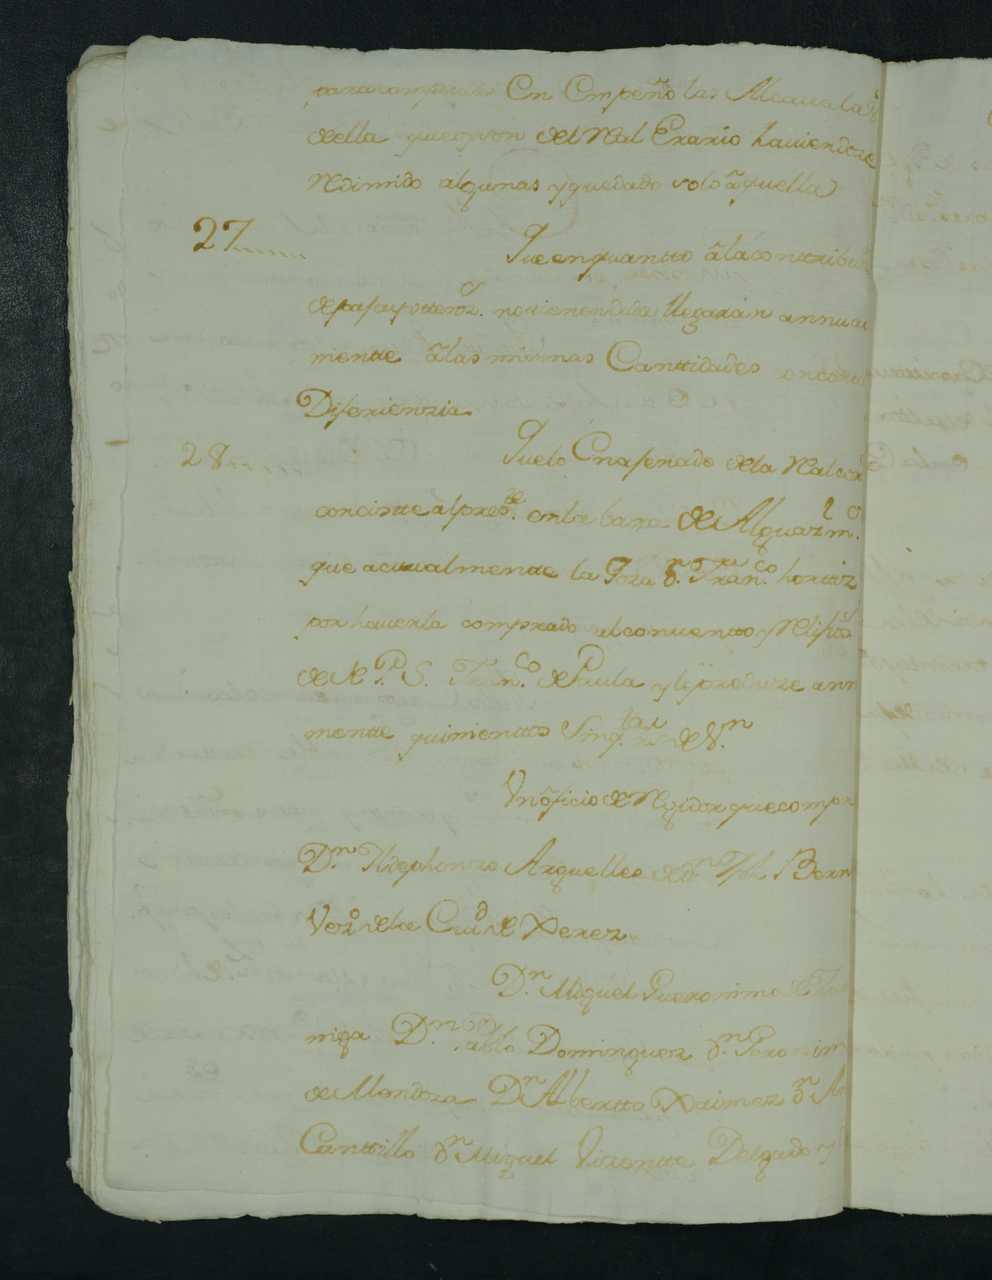 En Empeño las Alcavalas
della que son del Rl Erario haviendose
Redimido algunas y quedado solo aquella
27
Que en quantto á la contribu
de paja y ottros. no tienen dita llegarán annual
mente á las mismas Canttidades
Diferienzia
28 Que lo Enajenado de la Rl
concistte al preste. en la bara de Alguazl mo.
que actualmente la Goza Dn. Franco. horttiz
por haverla comprado al convento y Relixs
de N. P. S. Franco. de Paula y le produze ann
mente quinienttos Sinqta. rs de Vn
Un oficio de Rexidor que compr
Dn. Yldephonzo Arguelles de Dn Bern
Vezo. de la Ciud. de Xerez
Dn. Miguel Gueronimo
niga Dn. Pablo Dominguez Dn. Geronim
de Mendoza Dn Albertto Ximez Dn An
Canttillo Dn. Miguel Vizentte Delgado y